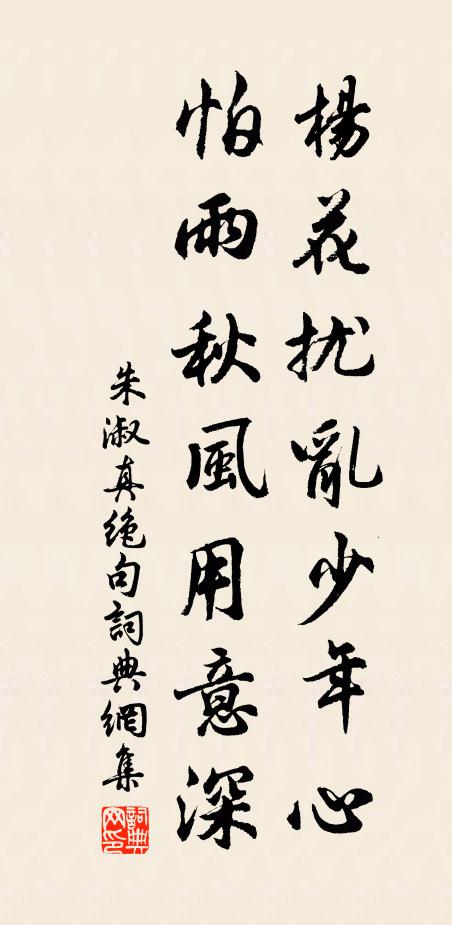 楊花扰亂少年心
怕雨秋風用意深
朱淑真绝句詞典網集
詞典网印